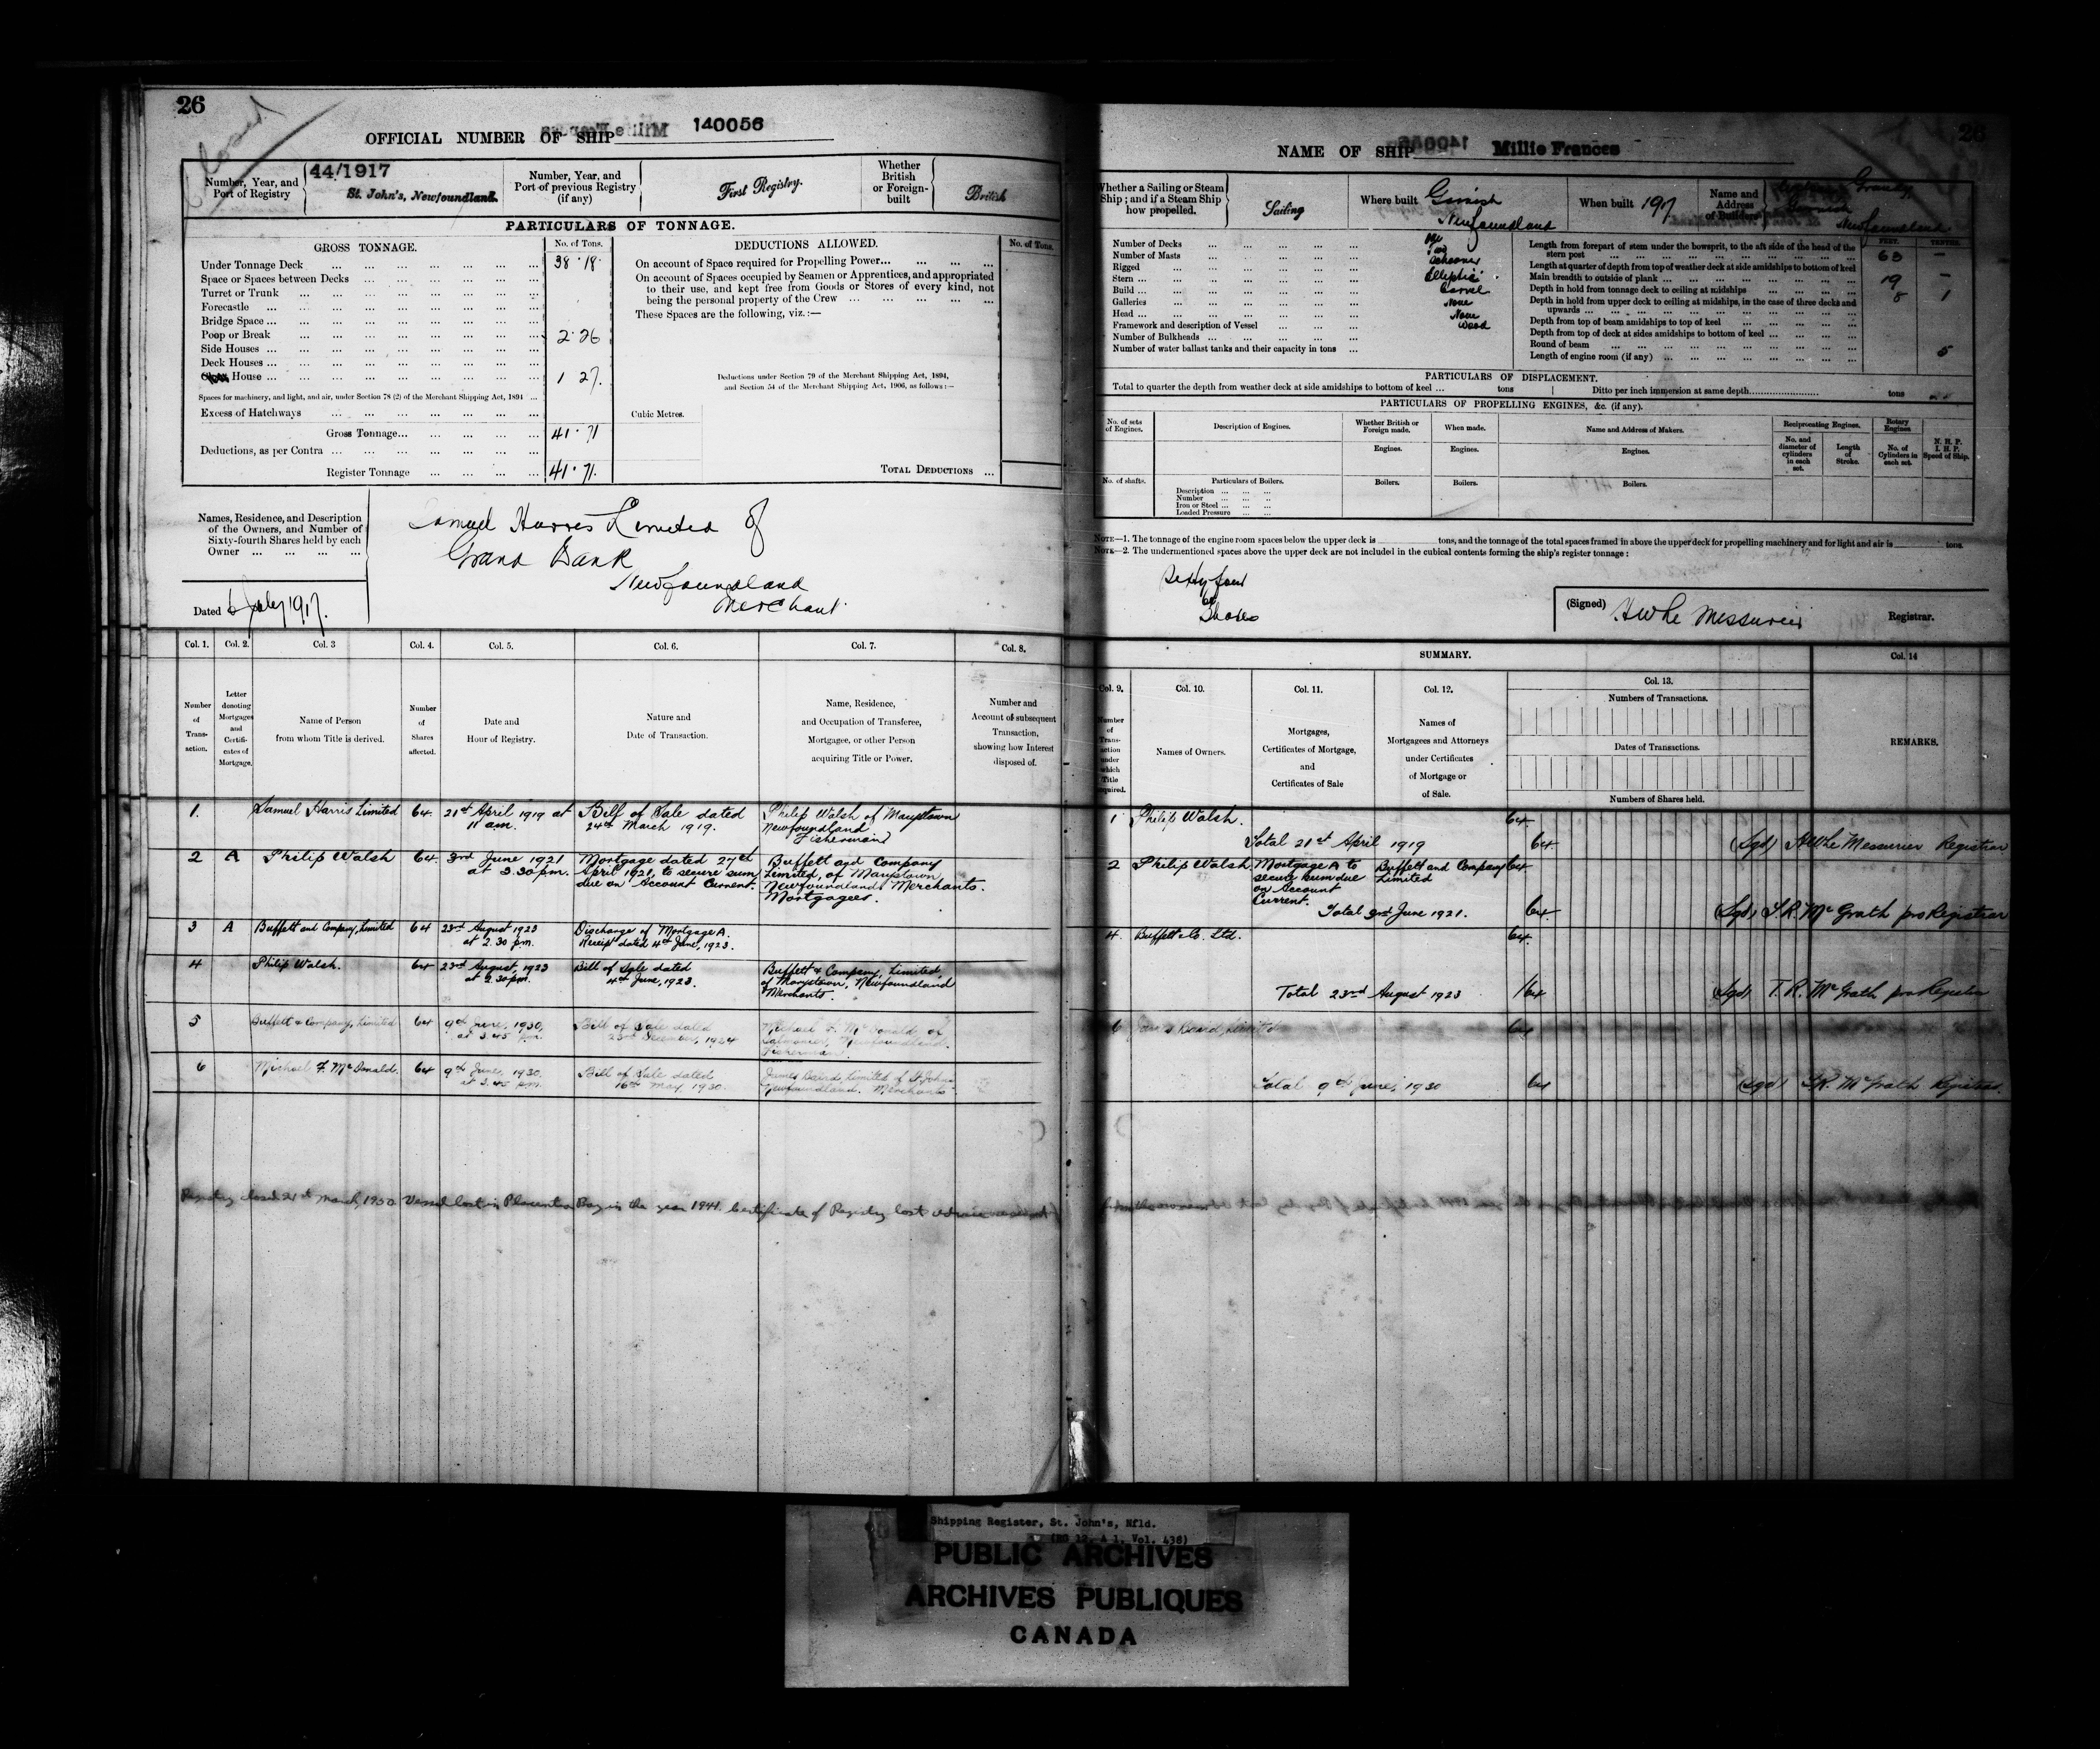 26
Closed
OFFICIAL NUMBER OF SHIP 140056
Number, Year, and
Port of Registry
44/1917
St. John's, Newfoundland.
Number, Year, and
Port of previous Registry
(if any)
First Registry.
Whether
British
or Foreign-
built
British
PARTICULARS OF TONNAGE.
GROSS TONNAGE.
No. of Tons.
Under Tonnage Deck ... 38.18
Space or Spaces between Decks ...
Turret or Trunk ...
Forecastle ...
Bridge Space ...
Poop or Break ... 2.26
Side Houses ...
Deck Houses ...
House ... 1 27.
Spaces for machinery, and light, and air, under Section 78 (2) of the Merchant Shipping Act, 1894 ...
Excess of Hatchways ...
Gross Tonnage ... 41.71
Deductions, as per Contra ...
Register Tonnage ... 41.71.
DEDUCTIONS ALLOWED.
No. of Tons.
On account of Space required for Propelling Power ...
On account of Spaces occupied by Seamen or Apprentices, and appropriated
to their use, and kept free from Goods or Stores of every kind, not
being the personal property of the Crew ...
These Spaces are the following, viz. :—
Deductions under Section 79 of the Merchant Shipping Act, 1894,
and Section 54 of the Merchant Shipping Act, 1906, as follows :—
Cubic Metres.
TOTAL DEDUCTIONS ...
Names, Residence, and Description
of the Owners, and Number of
Sixty-fourth Shares held by each
Owner ...
Samuel Harris Limited of
Grand Bank
Newfoundland
Merchant.
Dated 6 July 1917.
Col. 1.
Col. 2.
Col. 3
Col. 4.
Col. 5.
Col. 6.
Col. 7.
Col. 8.
Number
of
Trans-
action.
Letter
denoting
Mortgages
and
Certifi-
cates of
Mortgage.
Name of Person
from whom Title is derived.
Number
of
Shares
affected.
Date and
Hour of Registry.
Nature and
Date of Transaction.
Name, Residence,
and Occupation of Transferee,
Mortgagee, or other Person
acquiring Title or Power.
Number and
Account of subsequent
Transaction,
showing how Interest
disposed of.
1. Samuel Harris Limited 64. 21st April 1919 at
11 a.m.
Bill of Sale dated
24th March 1919.
Philip Walsh of Marystown
Newfoundland
Fisherman
2 A Philip Walsh 64. 3rd June 1921
at 3.30 p.m.
Mortgage dated 27th
April 1921, to secure sum
due on Account Current.
Buffett and Company
Limited, of Marystown
Newfoundland Merchants.
Mortgagees.
3 A Buffett and Company, Limited 64 23rd August 1923
at 2.30 p.m.
Discharge of Mortgage A.
Receipt dated 4th June, 1923.
4 Philip Walsh. 64 23rd August, 1923
at 2.30 p.m.
Bill of Sale dated
4th June, 1923.
Buffett & Company, Limited,
of Marystown, Newfoundland
Merchants.
5 Buffett & Company, Limited 64 9th June, 1930,
at 3.45 p.m.
Bill of Sale dated
23rd December, 1924
Michael F. McDonald, of
Salmonier, Newfoundland.
Fisherman.
6 Michael F. McDonald. 64 9th June, 1930.
at 3.45 p.m.
Bill of Sale dated
16th May 1930.
James Baird, Limited of St. John's
Newfoundland. Merchants
Registry closed 21st March, 1950. Vessel lost in Placentia Bay in the year 1941. Certificate of Registry lost
26
NAME OF SHIP Millie Frances
Whether a Sailing or Steam
Ship ; and if a Steam Ship
how propelled.
Sailing
Where built
Garnish
Newfoundland
When built 1917
Name and
Address
of Builders
Newfoundland.
Number of Decks ... One
Number of Masts ... Two
Rigged ... Schooner
Stern ... Elliptic
Build ... Carvel
Galleries ... None
Head ... None
Framework and description of Vessel ... Wood
Number of Bulkheads ...
Number of water ballast tanks and their capacity in tons ...
FEET. TENTHS.
Length from forepart of stem under the bowsprit, to the aft side of the head of the
stern post ... 63 —
Length at quarter of depth from top of weather deck at side amidships to bottom of keel
Main breadth to outside of plank ... 19 —
Depth in hold from tonnage deck to ceiling at midships ... 8 1
Depth in hold from upper deck to ceiling at midships, in the case of three decks and
upwards ...
Depth from top of beam amidships to top of keel ...
Depth from top of deck at sides amidships to bottom of keel ...
Round of beam ... 5
Length of engine room (if any) ...
PARTICULARS OF DISPLACEMENT.
Total to quarter the depth from weather deck at side amidships to bottom of keel ... tons
Ditto per inch immersion at same depth ... tons
PARTICULARS OF PROPELLING ENGINES, &c. (if any).
No. of sets
of Engines.
Description of Engines.
Whether British or
Foreign made.
When made.
Name and Address of Makers.
Reciprocating Engines.
Rotary
Engines
N. H. P.
I. H. P.
Speed of Ship.
Engines.
Engines.
Engines.
No. and
diameter of
cylinders
in each
set.
Length
of
Stroke.
No. of
Cylinders in
each set.
No. of shafts.
Particulars of Boilers.
Boilers.
Boilers.
Boilers.
Description ...
Number ...
Iron or Steel ...
Loaded Pressure ...
NOTE—1. The tonnage of the engine room spaces below the upper deck is tons, and the tonnage of the total spaces framed in above the upper deck for propelling machinery and for light and air is tons.
NOTE—2. The undermentioned spaces above the upper deck are not included in the cubical contents forming the ship's register tonnage :
Sixty four
64
Shares
(Signed) H W Le Messurier Registrar.
SUMMARY.
Col. 14
Col. 9.
Col. 10.
Col. 11.
Col. 12.
Col. 13.
Number
of
Trans-
action
under
which
Title
acquired.
Names of Owners.
Mortgages,
Certificates of Mortgage,
and
Certificates of Sale
Names of
Mortgagees and Attorneys
under Certificates
of Mortgage or
of Sale.
Numbers of Transactions.
Dates of Transactions.
Numbers of Shares held.
REMARKS.
1 Philip Walsh. 64
Total 21st April 1919 64 (Sgd) H W Le Messurier Registrar
2 Philip Walsh Mortgage A to
secure sum due
on Account
Current.
Buffett and Company
Limited
64
Total 3rd June 1921. 64 (Sgd) T.R. McGrath pro Registrar
4. Buffett & Co. Ltd. 64
Total 23rd August 1923 64 (Sgd) T. R. McGrath pro Registrar
6 James Baird, Limited 64
Total 9th June, 1930 64 (sgd) T.R. McGrath Registrar.
Shipping Register, St. John's, Nfld.
(RG 12, A 1, Vol. 438)
PUBLIC ARCHIVES
ARCHIVES PUBLIQUES
CANADA